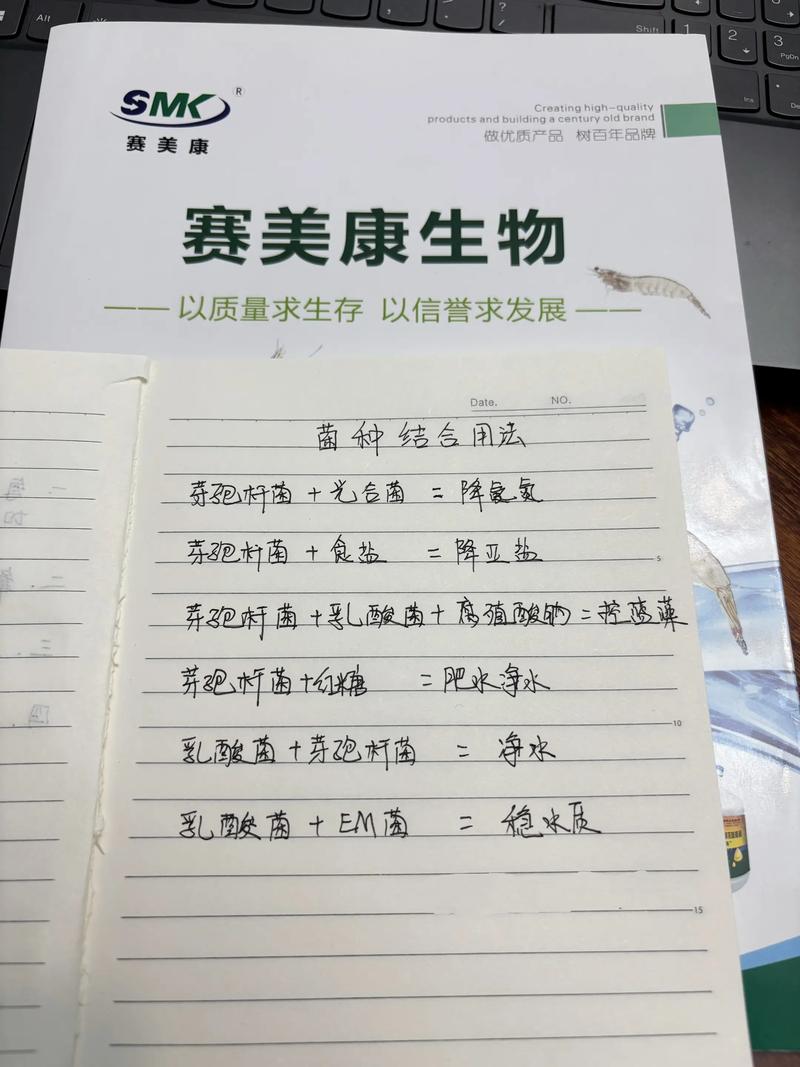 Alt
Shift
2
3
PgDn
Ins
SMK®
赛美康
Creating high-quality
products and building a century old brand
做优质产品 树百年品牌
赛美康生物
——以质量求生存 以信誉求发展——
Date. NO.
菌种结合用法
芽孢杆菌+光合菌=降氨氮
芽孢杆菌+食盐=降亚盐
5
芽孢杆菌+乳酸菌+腐殖酸钠=控蓝藻
芽孢杆菌+红糖=肥水净水
10
乳酸菌+芽孢杆菌=净水
乳酸菌+EM菌=稳水质
15